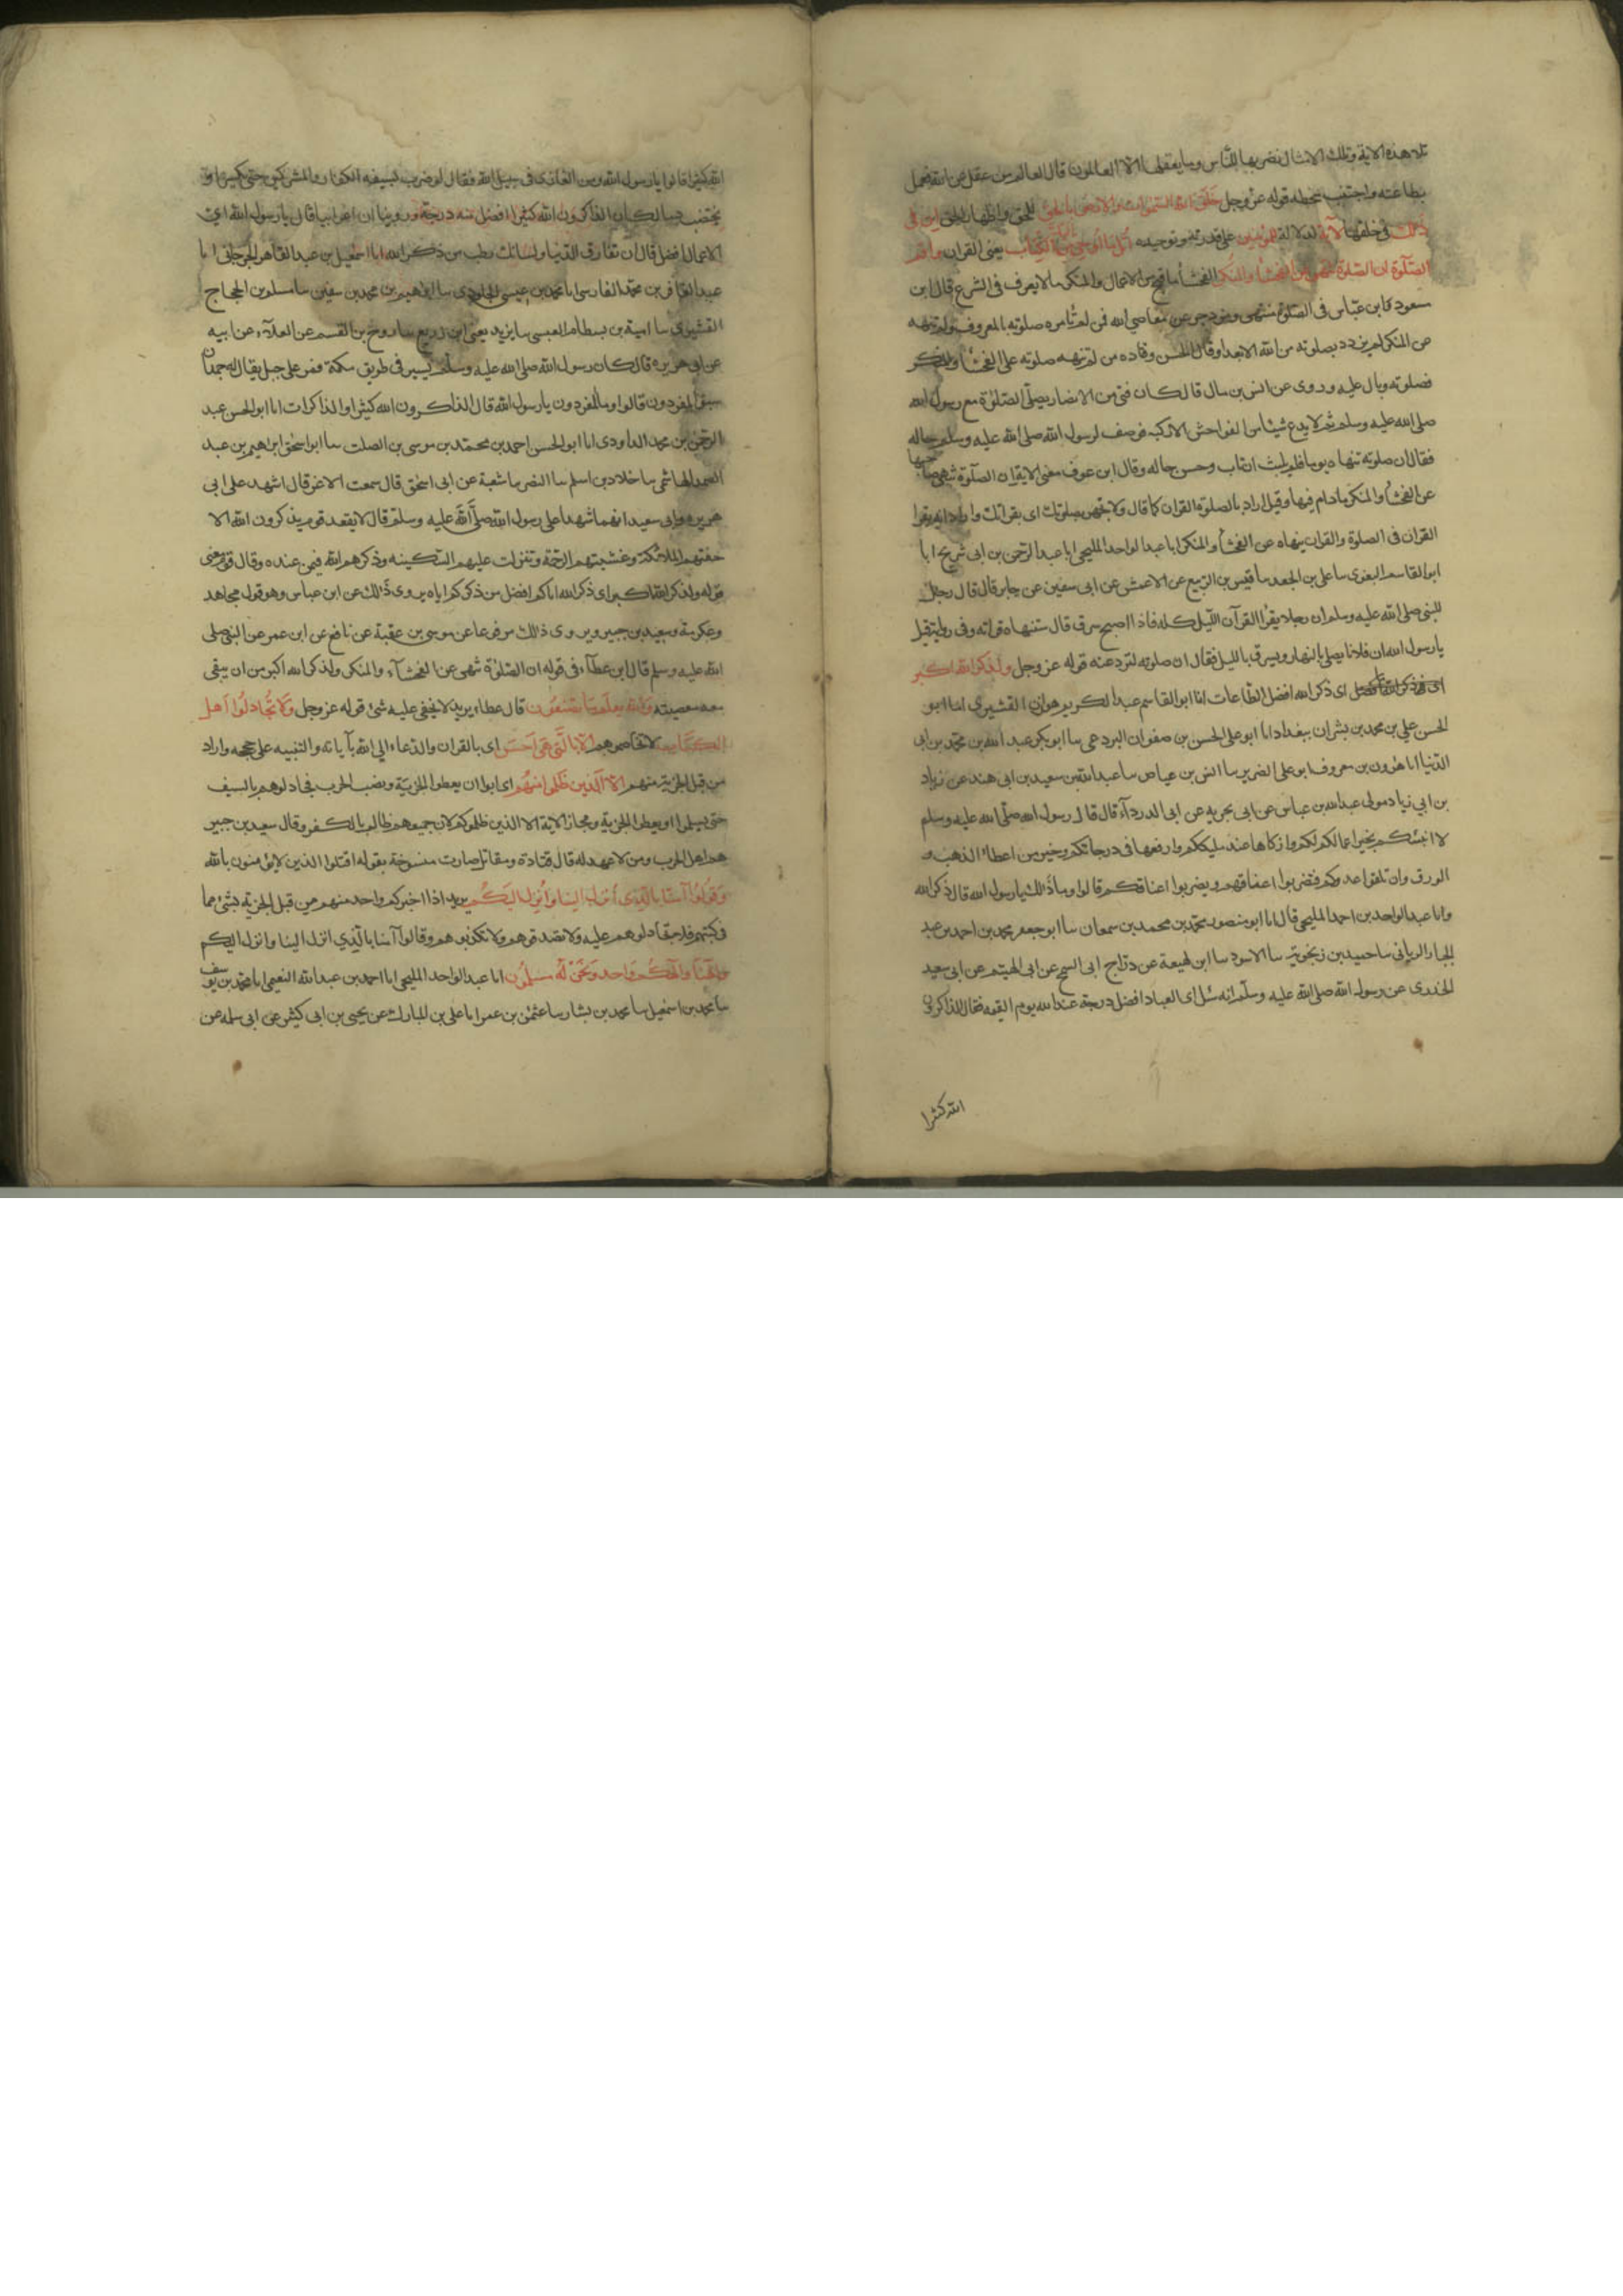 تلا هذه الاية وتلك الامثال نضربها للناس وما يعقلها الا العالمون قال العالم من عقل عن الله فعمل
بطاعته واجتنب سخطه قوله عز وجل خلق الله السموات والارض بالحق للحق واظهار الحق ان في
ذلك في خلقها لاية لدلالة للمؤمنين على قدرته وتوحيده اتل ما اوحي اليك من الكتاب يعني القران واقم
الصلوة ان الصلوة تنهى عن الفحشأ والمنكر الفحشأ ما قبح من الاعمال والمنكر ما لا يعرف في الشرع قال ابن
مسعود وابن عباس في الصلوة منتهى ومزدجر عن معاصي الله فمن لم تأمره صلوته بالمعروف ولم تنهه
عن المنكر لم يزدد بصلوته من الله الا بعدا وقال الحسن وقتاده من لم تنهه صلوته على الفحشأ والمنكر
فصلوته وبال عليه وروى عن انس بن مالك قال كان فتى من الانصار يصلي الصلوة مع رسول الله
صلى الله عليه وسلم ثم لا يدع شيئا من الفواحش الا ركبه فوصف لرسول الله صلى الله عليه وسلم حاله
فقال ان صلوته تنهاه يوما فلم يلبث ان تاب وحسن حاله وقال ابن عوف معنى الاية ان الصلوة تنهى صاحبها
عن الفحشأ والمنكر ما دام فيها وقيل اراد بالصلوة القران كما قال ولا تجهر بصلوتك اى بقراتك واراد انه يقرا
القران في الصلوة والقران ينهاه عن الفحشأ والمنكر ابا عبد الواحد المليحي ابا عبد الرحمن بن ابى شريح ابا
ابو القاسم البغوى سا على بن الجعد سا قيس بن الربيع عن الاعمش عن ابى سفين عن جابر قال قال رجل
للنبى صلى الله عليه وسلم ان رجلا يقرا القرآن الليل كله فاذا اصبح سرق قال ستنهاه قراته وفى رواية قيل
يا رسول الله ان فلانا يصلي بالنهار ويسرق بالليل فقال ان صلوته لتردعنه قوله عز وجل ولذكر الله اكبر
اى ذكر الله افضل الطاعات انا ابو القاسم عبد الكريم بن هوازن القشيرى انا ابو
الحسن علي بن محمد بن بشران ببغداد ابا ابو على الحسن بن صفوان البردعى سا ابو بكر عبد الله بن محمد بن ابى
الدنيا انا هرون بن معروف ابو على الضرير سا انس بن عياض سا عبد الله بن سعيد بن ابى هند عن زياد
بن ابي زياد مولى عبد الله بن عياش عن ابى بحريه عن ابى الدرداء قال قال رسول الله صلى الله عليه وسلم
لا انبئكم بخير اعمالكم لكم وازكاها عند مليككم وارفعها في درجاتكم وخير من اعطاء الذهب و
الورق وان تلقوا عدوكم فتضربوا اعناقهم ويضربوا اعناقكم قالوا وما ذلك يا رسول الله قال ذكر الله
وانا عبد الواحد بن احمد المليحي قال ابا ابو منصور محمد بن محمد بن سمعان سا ابو جعفر محمد بن احمد بن عبد
الجبار الرياني سا حميد بن زنجويه سا الاسود سا ابن لهيعة عن دراج ابى السمح عن ابى الهيثم عن ابى سعيد
الخدرى عن رسول الله صلى الله عليه وسلم انه سئل اى العباد افضل درجة عند الله يوم القيمه فقال الذاكرون
الله كثيرا
الله كثيرا قالوا يا رسول الله ومن الغازى في سبيل الله فقال لو ضرب بسيفه الكفار والمشركين حتى ينكسر او
يختضب دما لكان الذاكرون الله كثيرا افضل منه درجة وروينا ان اعرابيا قال يا رسول الله اى
الاعمال افضل قال ان تفارق الدنيا ولسانك رطب من ذكر الله ابا اسمعيل بن عبد القاهر الجرجانى ابا
عبد الغافر بن محمد الفارسى ابا محمد بن عيسى الجلودى سا ابراهيم بن محمد بن سفين سا مسلم بن الحجاج
القشيرى سا امية بن بسطام العبسى سا يزيد يعني ابن زريع سا روح بن القسم عن العلآء عن ابيه
عن ابى هريره قال كان رسول الله صلى الله عليه وسلم يسير في طريق مكة فمر على جبل يقال له جمدان
سبق المفردون قالوا وما المفردون يا رسول الله قال الذاكرون الله كثيرا والذاكرات انا ابو الحسن عبد
الرحمن بن محمد الداودى ابا ابو الحسن احمد بن محمد بن موسى بن الصلت سا ابو اسحق ابراهيم بن عبد
الصمد الهاشمى سا خلاد بن اسلم سا النضر سا شعبة عن ابى اسحق قال سمعت الاغر قال اشهد على ابى
هريره وابى سعيد انهما شهدا على رسول الله صلى الله عليه وسلم قال لا يقعد قوم يذكرون الله الا
حفتهم الملائكة وغشيتهم الرحمة وتنزلت عليهم السكينه وذكرهم الله فيمن عنده وقال قوم معنى
قوله ولذكر الله اكبر اى ذكر الله اياكم افضل من ذكركم اياه يروى ذلك عن ابن عباس وهو قول مجاهد
وعكرمة وسعيد بن جبير ويروى ذلك مرفوعا عن موسى بن عقبة عن نافع عن ابن عمر عن النبى صلى
الله عليه وسلم قال ابن عطآء في قوله ان الصلوة تنهى عن الفحشآء والمنكر ولذكر الله اكبر من ان يبقى
معه معصيته والله يعلم ما تصنعون قال عطاء يريد لا يخفى عليه شئ قوله عز وجل ولا تجادلوا اهل
الكتاب لا تخاصموهم الا بالتي هي احسن اى بالقران والدعاء الي الله بآياته والتنبيه على حججه واراد
من قبل الجزية منهم الا الذين ظلموا منهم اى ابوا ان يعطوا الجزية ونصب الحرب فجادلوهم بالسيف
حتى يسلموا او يعطوا الجزية ومجاز الاية الا الذين ظلموكم لان جميعهم ظالم بالكفر وقال سعيد بن جبير
هم اهل الحرب ومن لا عهد له قال قتادة ومقاتل صارت منسوخة بقوله اقتلوا الذين لا يؤمنون بالله
وقولوا آمنا بالذى أنزل الينا وأنزل اليكم يريد اذا اخبركم واحد منهم من قبل الجزية بشئ مما
في كتبهم فلا تجادلوهم عليه ولا تصدقوهم ولا تكذبوهم وقالوا آمنا بالذي انزل الينا وانزل اليكم
والهنا والهكم واحد ونحن له مسلمون انا عبد الواحد المليحى ابا احمد بن عبد الله النعيمى ابا محمد بن يوسف
سا محمد بن اسمعيل سا محمد بن بشار سا عثمن بن عمر ابا على بن المبارك عن يحيى بن ابى كثير عن ابى سلمه عن